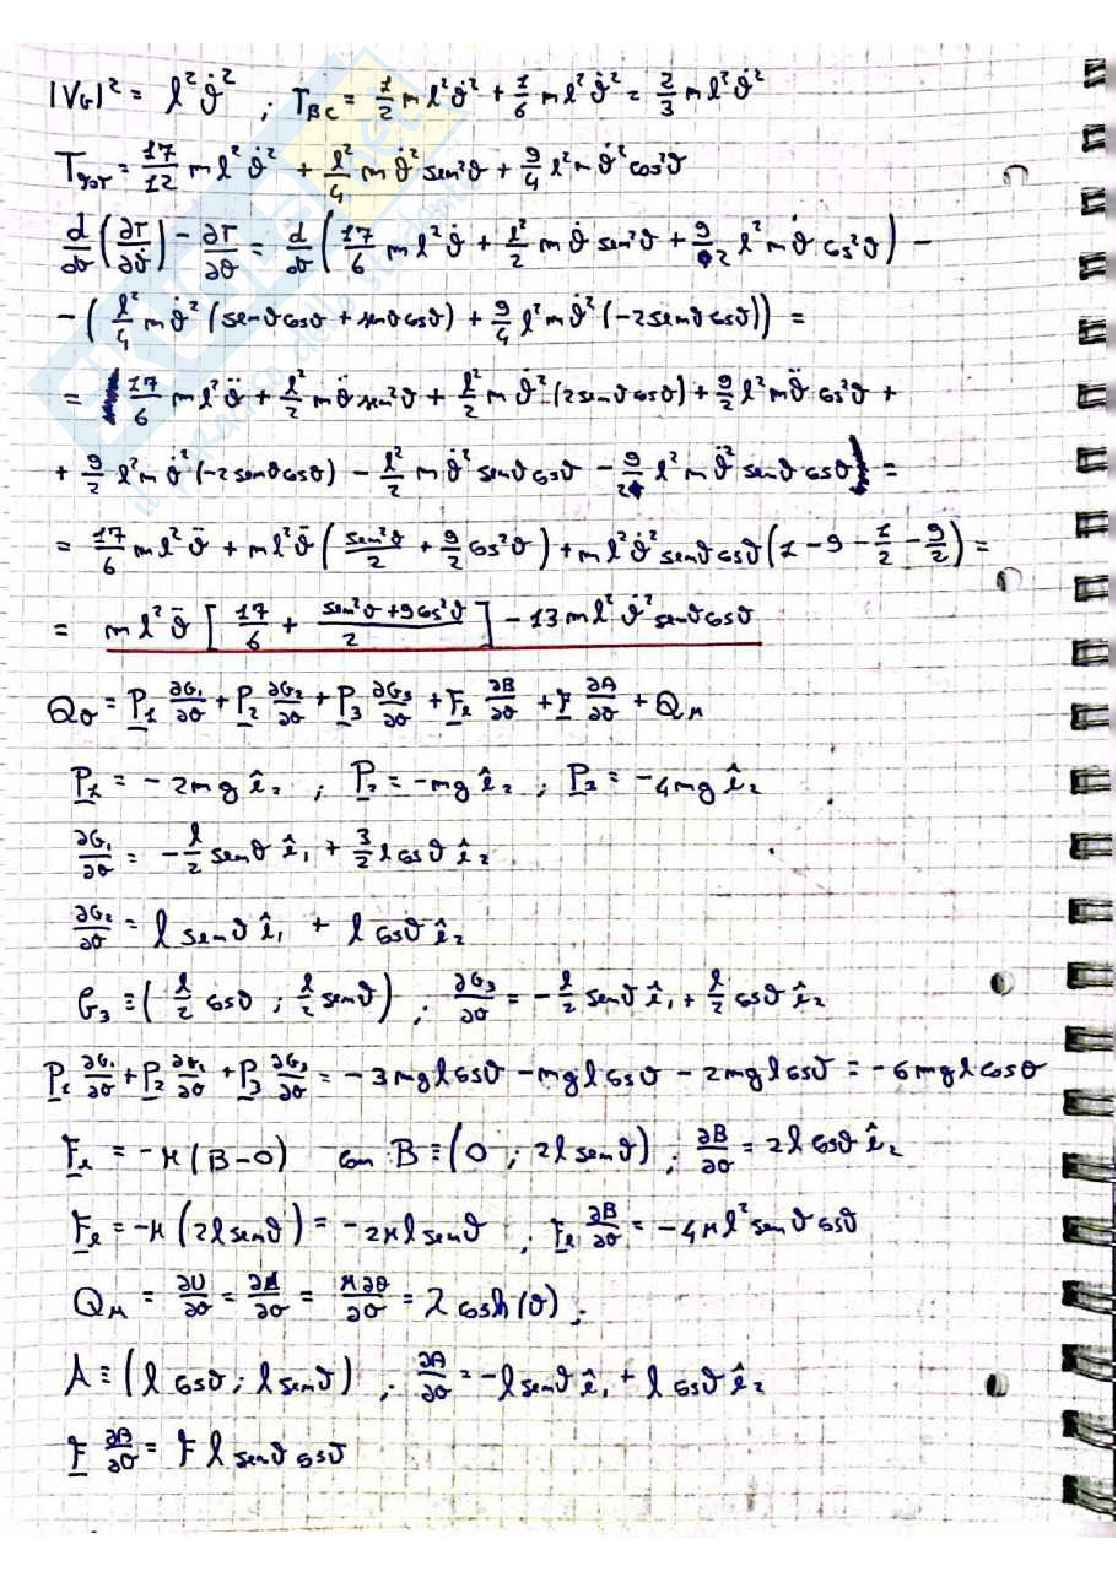 |V_G|² = l²ϑ̇² ; T_BC = 1/2 m l²ϑ̇² + 1/6 m l²ϑ̇² = 2/3 m l²ϑ̇²
T_TOT = 17/12 m l²ϑ̇² + l²/4 m ϑ̇² sen²ϑ + 9/4 l² m ϑ̇² cos²ϑ
d/dϑ (∂T/∂ϑ̇) − ∂T/∂θ = d/dϑ (17/6 m l²ϑ̇ + l²/2 m ϑ̇ sen²ϑ + 9/2 l² m ϑ̇ cos²ϑ) −
− (l²/4 m ϑ̇² (senϑcosϑ + senϑcosϑ) + 9/4 l² m ϑ̇² (−2senϑcosϑ)) =
= 17/6 m l²ϑ̈ + l²/2 m ϑ̈ sen²ϑ + l²/2 m ϑ̇² (2senϑcosϑ) + 9/2 l² m ϑ̈ cos²ϑ +
+ 9/2 l² m ϑ̇² (−2senϑcosϑ) − l²/2 m ϑ̇² senϑcosϑ − 9/2 l² m ϑ̇² senϑcosϑ =
= 17/6 m l²ϑ̈ + m l²ϑ̈ (sen²ϑ/2 + 9/2 cos²ϑ) + m l²ϑ̇² senϑcosϑ (1 − 9 − 1/2 − 9/2) =
= m l²ϑ̈ [17/6 + (sen²ϑ + 9cos²ϑ)/2] − 13 m l²ϑ̇² senϑcosϑ
Q_θ = P₁ ∂G₁/∂θ + P₂ ∂G₂/∂θ + P₃ ∂G₃/∂θ + F_e ∂B/∂θ + F ∂A/∂θ + Q_M
P₁ = −2mg ê₂ ; P₂ = −mg ê₂ ; P₃ = −4mg ê₂
∂G₁/∂θ = −l/2 senϑ ê₁ + 3/2 l cosϑ ê₂
∂G₂/∂θ = l senϑ ê₁ + l cosϑ ê₂
G₃ ≡ (l/2 cosϑ ; l/2 senϑ) ; ∂G₃/∂θ = −l/2 senϑ ê₁ + l/2 cosϑ ê₂
P₁ ∂G₁/∂θ + P₂ ∂G₁/∂θ + P₃ ∂G₃/∂θ = −3mgl cosϑ − mgl cosϑ − 2mgl cosϑ = −6mgl cosθ
F_e = −K(B−O) con B ≡ (0 ; 2l senϑ) ; ∂B/∂θ = 2l cosϑ ê₂
F_e = −K(2l senϑ) = −2Kl senϑ ; F_e ∂B/∂θ = −4Kl² senϑ cosϑ
Q_M = ∂U/∂θ = ∂M/∂θ = M∂θ/∂θ = λ cosh(θ) ;
A ≡ (l cosϑ ; l senϑ) ; ∂A/∂θ = −l senϑ ê₁ + l cosϑ ê₂
F ∂B/∂θ = F l senϑ cosϑ